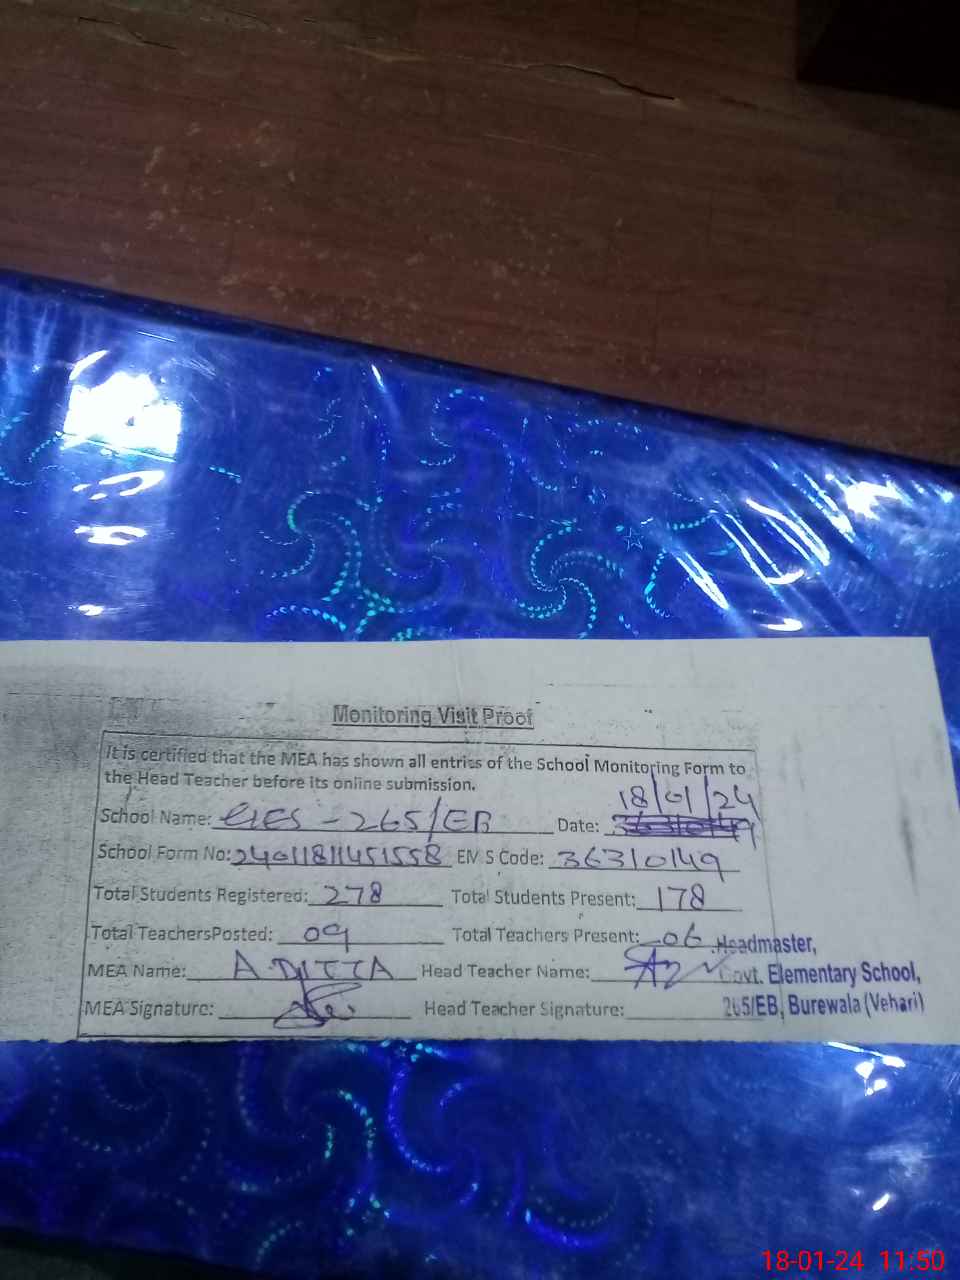 Monitoring Visit Proof
It is certified that the MEA has shown all entries of the School Monitoring Form to
the Head Teacher before its online submission.
18/01/24
School Name: GES - 265/EB Date:
School Form No: 24011811451558 EMIS Code: 36310149
Total Students Registered: 278 Total Students Present: 178
Total TeachersPosted: 09 Total Teachers Present: 06
Headmaster,
MEA Name: A.DITTA Head Teacher Name: Govt. Elementary School,
MEA Signature: Head Teacher Signature: 265/EB, Burewala (Vehari)
18-01-24 11:50